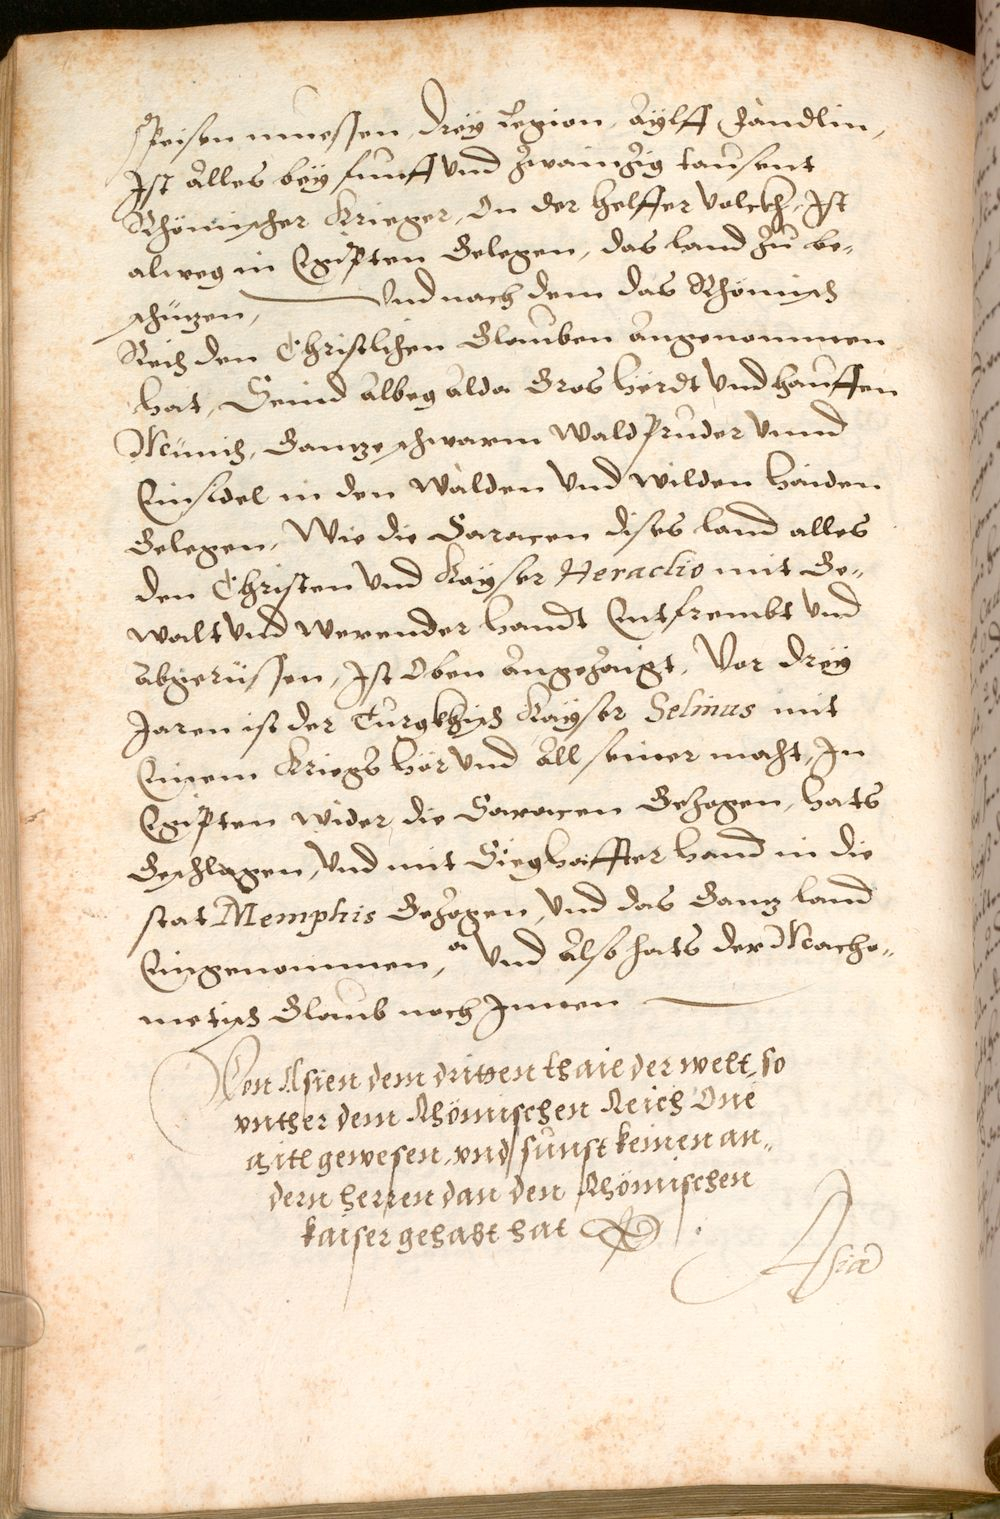 speisen muessen, drey Legion, aylff Fandlin,
Ist alles bey funff und zwainzig tausent
Rhömischer Krieger, On der helffer volckh, Ist
alweg in Egipten Gelegen, das land zu be„
schützen, Und nach dem das Rhömisch
Reich den Christlichen Glauben angenommen
hat, Seind albeg alda Gros herdt Und hauffen
Münich, Gantze schwarm Waldpruder Unnd
Einsidel in den Wälden Und Wilden haiden
Gelegen, Wie die Saracen dises land alles
den Christen Und Kayser Heraclio mit Ge„
walt Und Werender handt Entfrembt Und
abgerüssen, Ist Oben angezaigt, Vor drey
Jaren ist der Turgkhisch Kayser Selimus mit
Einem Kriegs hör Und all seiner macht, In
Egipten Wider die Saracen Gezogen, hats
Geschlagen, Und mit Sieghaffter hand in die
stat Memphis Gezogen, Und das Gantz land
Eingenommen, Und also hats der Macho„
metisch Glaub noch Innen
Von Asien dem dritten thaile der welt, so
vnther dem Rhömischen Reich One
mitl gewesen, vnd sunst keinen an„
dern herren dan den Rhömischen
kaiser gehabt hat
Asia